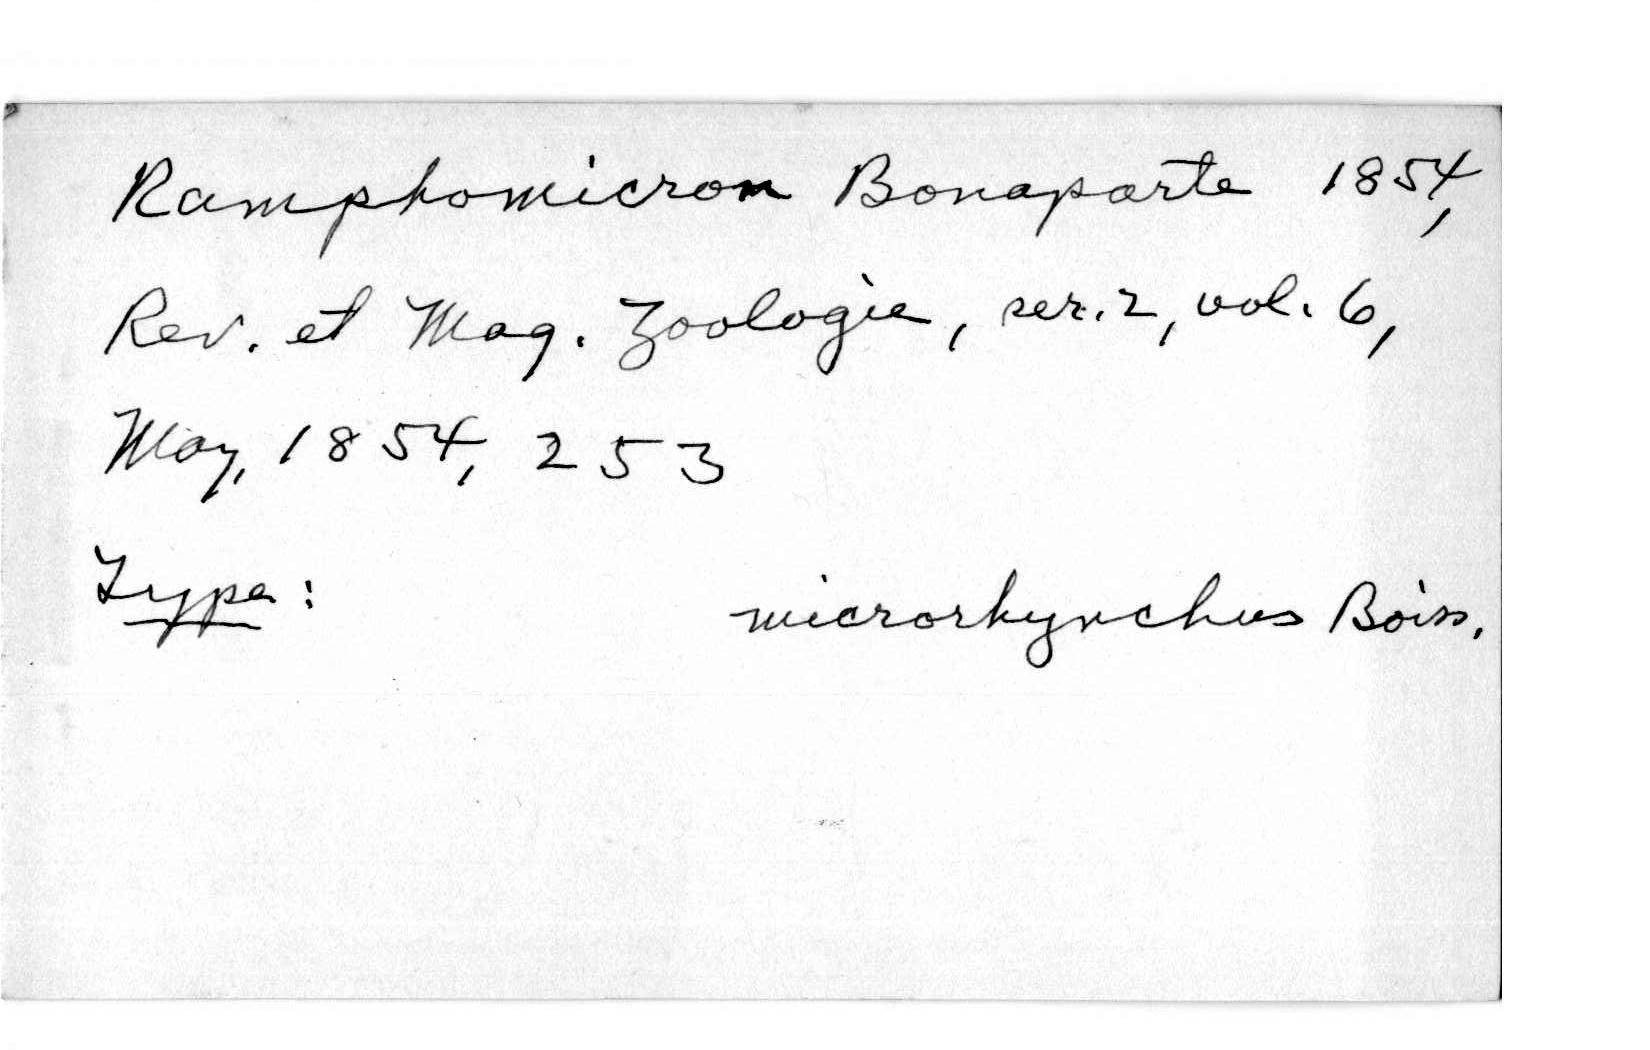 Ramphomicron Bonaparte 1854,
Rev. et Mag. Zoologie, ser. 2, vol. 6,
May, 1854, 253
Type: microrhynchus Boiss.